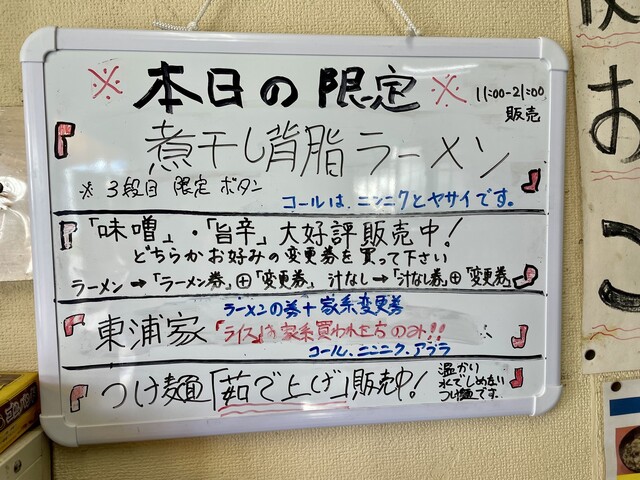 ※ 本日の限定 ※
11:00-21:00
販売
煮干し背脂ラーメン
※ 3段目 限定 ボタン
コールは、ニンニクとヤサイです。
「味噌」・「旨辛」大好評販売中!
どちらかお好みの変更券を買って下さい
ラーメン→「ラーメン券」⊕「変更券」 汁なし→「汁なし券」⊕「変更券」
ラーメンの券+家系変更券
東浦家 「ライス」は家系買われた方のみ!!
コール、ニンニク、アブラ
つけ麺「茹で上げ」販売中!
温かい
水でしめない
つけ麺です。
おこ